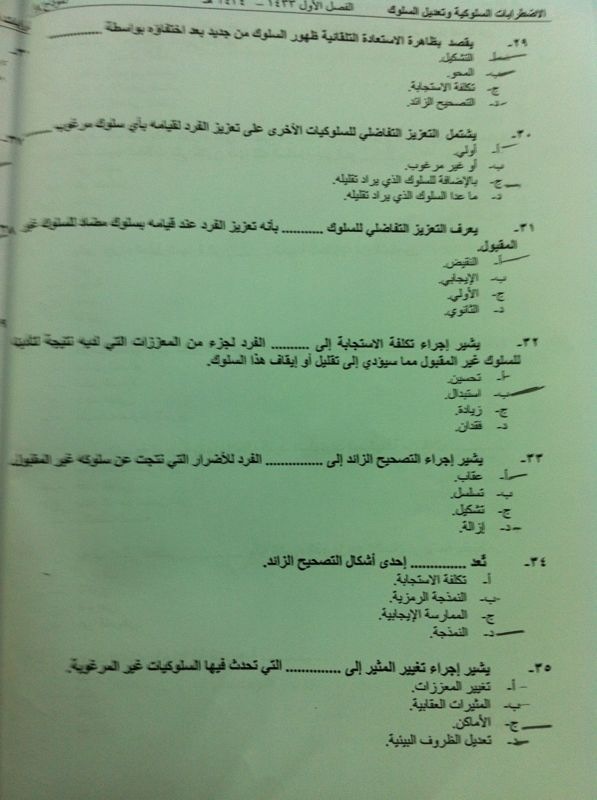 الاضطرابات السلوكية وتعديل السلوك الفصل الأول ١٤٣٣ – ١٤٣٤ هـ
٢٩- يقصد بظاهرة الاستعادة التلقائية ظهور السلوك من جديد بعد اختفاؤه بواسطة ............
أ- التشكيل.
ب- المحو.
ج- تكلفة الاستجابة.
د- التصحيح الزائد.
٣٠- يشتمل التعزيز التفاضلي للسلوكيات الأخرى على تعزيز الفرد لقيامه بأي سلوك مرغوب ............
أ- أولي.
ب- أو غير مرغوب.
ج- بالإضافة للسلوك الذي يراد تقليله.
د- ما عدا السلوك الذي يراد تقليله.
٣١- يعرف التعزيز التفاضلي للسلوك .......... بأنه تعزيز الفرد عند قيامه بسلوك مضاد للسلوك غير
المقبول.
أ- النقيض.
ب- الإيجابي.
ج- الأولي.
د- الثانوي.
٣٢- يشير إجراء تكلفة الاستجابة إلى .......... الفرد لجزء من المعززات التي لديه نتيجة لتأديته
للسلوك غير المقبول مما سيؤدي إلى تقليل أو إيقاف هذا السلوك.
أ- تحسين.
ب- استبدال.
ج- زيادة.
د- فقدان.
٣٣- يشير إجراء التصحيح الزائد إلى .............. الفرد للأضرار التي نتجت عن سلوكه غير المقبول.
أ- عقاب.
ب- تسلسل.
ج- تشكيل.
د- إزالة.
٣٤- تُعد .............. إحدى أشكال التصحيح الزائد.
أ- تكلفة الاستجابة.
ب- النمذجة الرمزية.
ج- الممارسة الإيجابية.
د- النمذجة.
٣٥- يشير إجراء تغيير المثير إلى .............. التي تحدث فيها السلوكيات غير المرغوبة.
أ- تغيير المعززات.
ب- المثيرات العقابية.
ج- الأماكن.
د- تعديل الظروف البيئية.